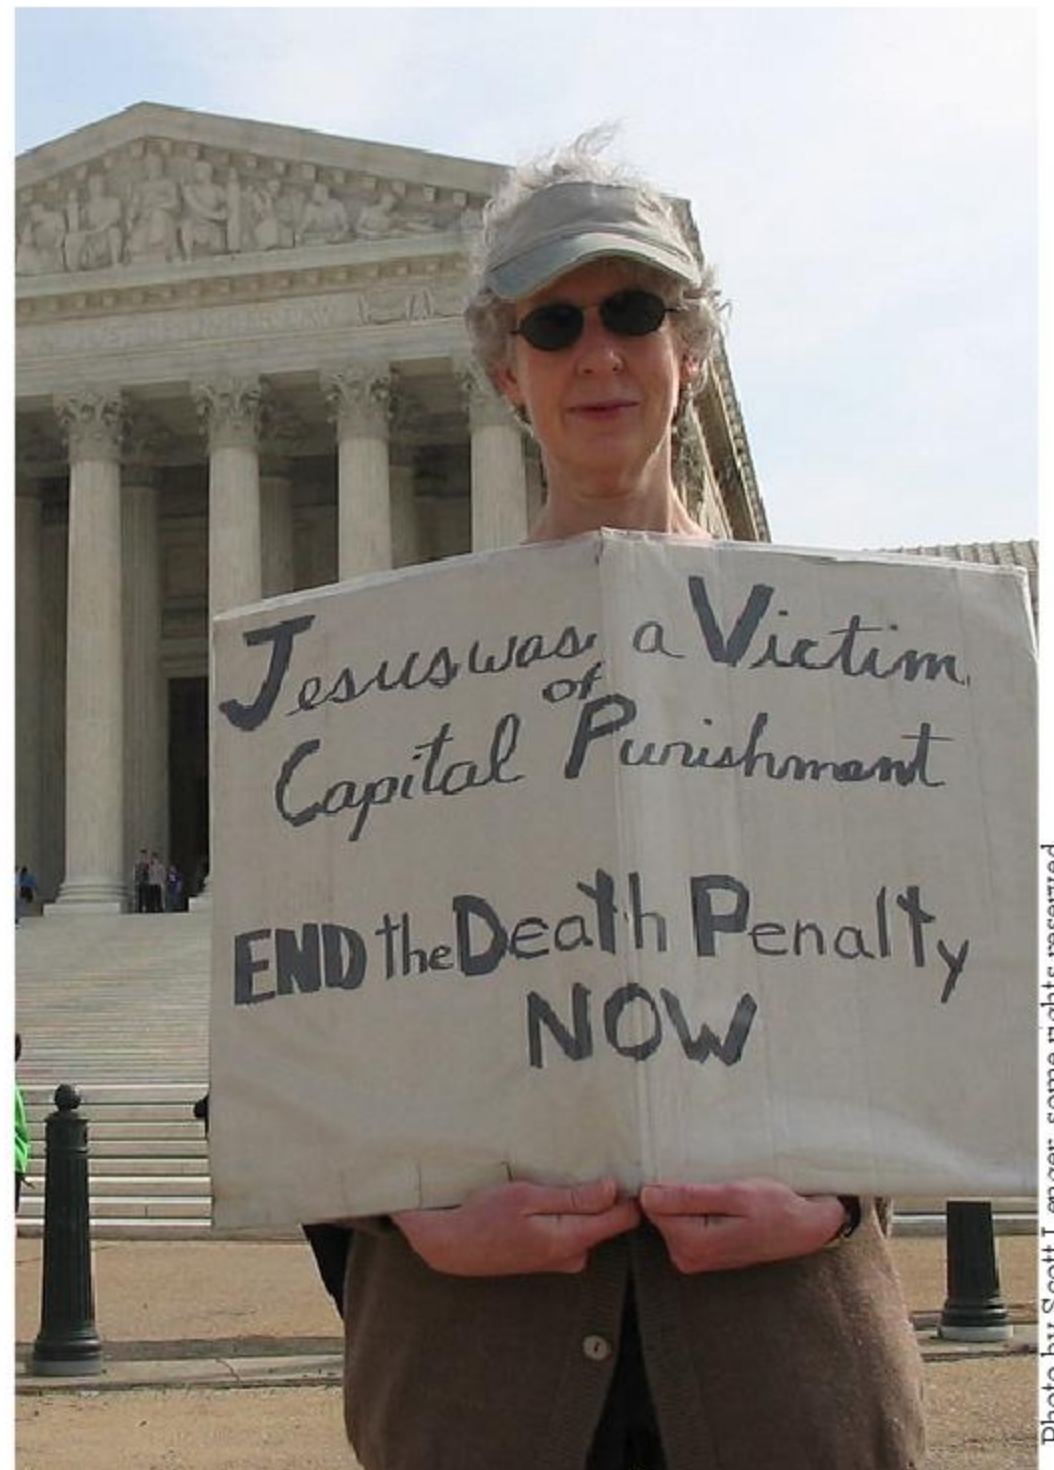 Jesus was a Victim
of
Capital Punishment
END the Death Penalty
NOW
Photo by Scott Langer, some rights reserved